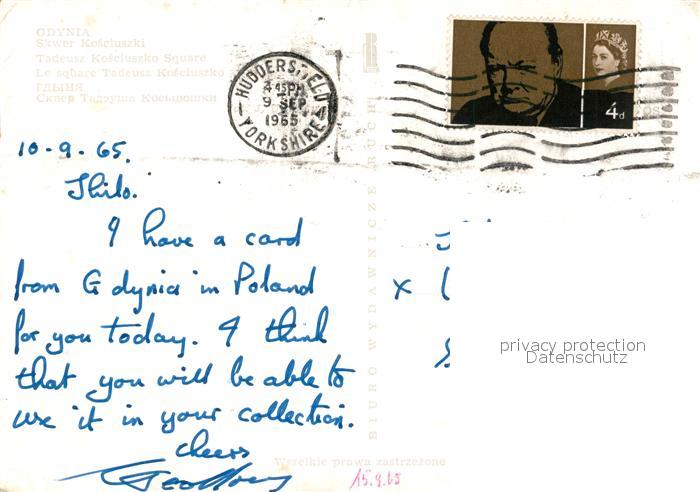 GDYNIA
Skwer Kościuszki
Tadeusz Kościuszko Square
Le square Tadeusz Kościuszko
ГДЫНЯ
Сквер Тадэуша Косьцюшки
HUDDERSFIELD
4 45 PM
9 SEP
1965
YORKSHIRE
4d
10-9-65.
Thilo.
I have a card
from Gdynia in Poland
for you today. I think
that you will be able to
use it in your collection.
cheers
Geoffrey
BIURO WYDAWNICZE RUCH
x
privacy protection
Datenschutz
Wszelkie prawa zastrzeżone
15.9.65